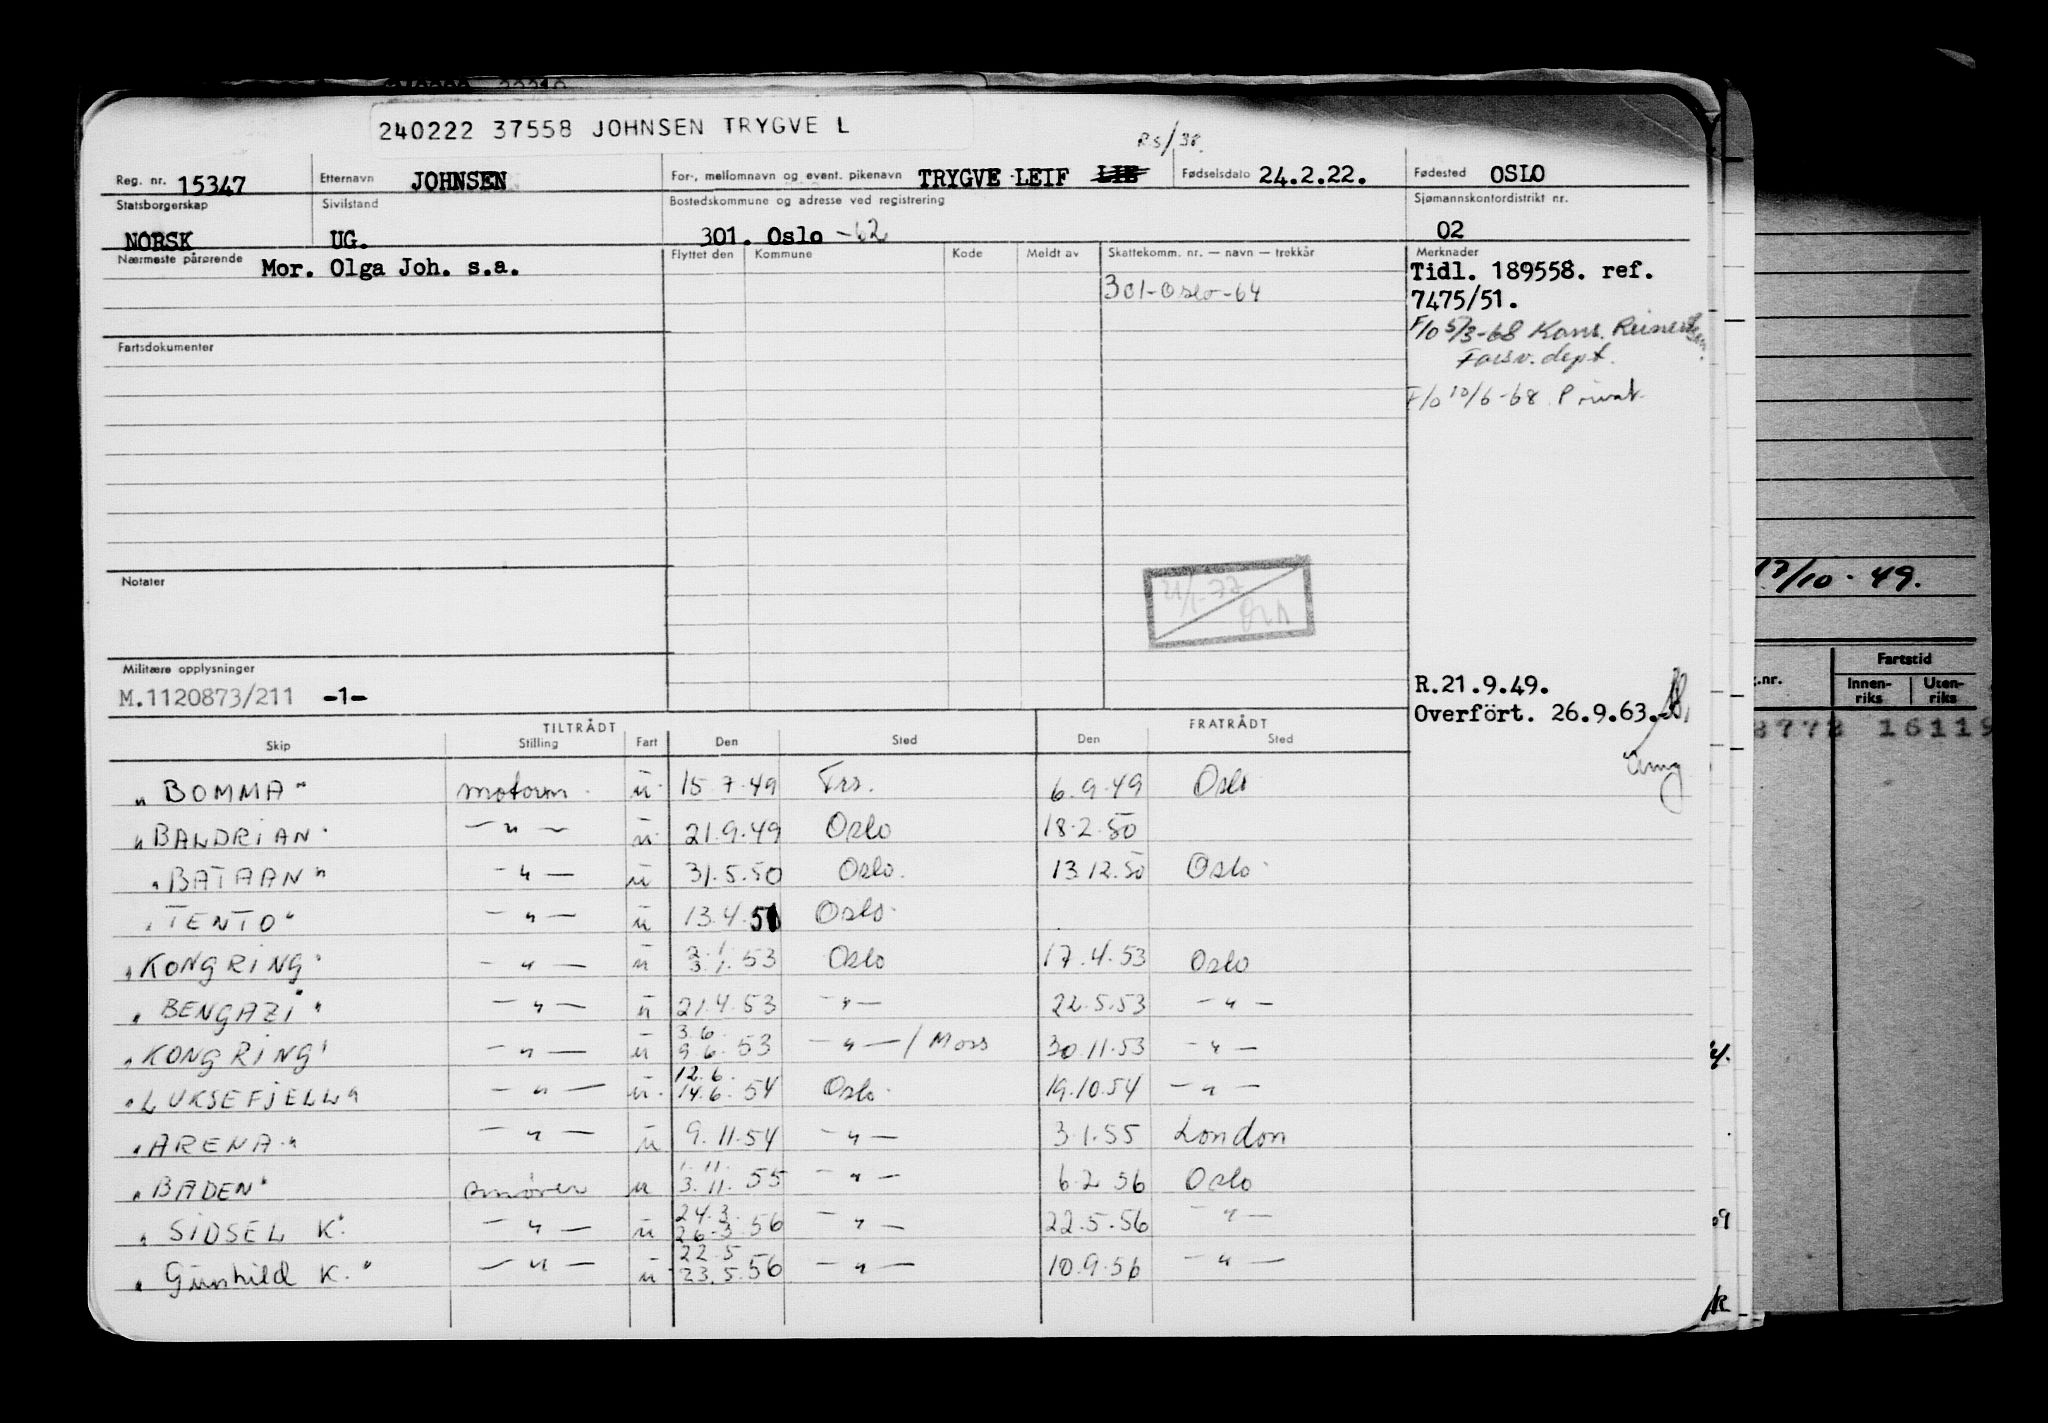 240222 37558 JOHNSEN TRYGVE L
RS/38.
Reg. nr. 15347 Etternavn JOHNSEN For-, mellomnavn og event. pikenavn TRYGVE LEIF LIE Fødselsdato 24.2.22. Fødested OSLO
Statsborgerskap Sivilstand Bostedskommune og adresse ved registrering Sjømannskontordistrikt nr.
NORSK UG. 301. Oslo -62 02
Nærmeste pårørende Mor. Olga Joh. s.a. Flyttet den Kommune Kode Meldt av Skattekomm. nr. — navn — trekkår Merknader
301-Oslo-64
Tidl. 189558. ref.
7475/51.
F/o 5/3-68 Kons.
Forsv.dept.
F/o 10/6-68 Privat
Fartsdokumenter
Notater
21/1-77
Militære opplysninger
M.1120873/211 -1-
R.21.9.49.
Overfört. 26.9.63.-
TILTRÅDT FRATRÅDT
Skip Stilling Fart Den Sted Den Sted
"BOMMA" motorm. u. 15.7.49 Trs. 6.9.49 Oslo
"BALDRIAN" —"— u. 21.9.49 Oslo 18.2.50
"BATAAN" —"— u 31.5.50 Oslo. 13.12.50 Oslo
"TENTO" —"— u 13.4.51 Oslo
"KONGRING" —"— u 2.1. 3.1.53 Oslo 17.4.53 Oslo
"BENGAZI" —"— u 21.4.53 —"— 22.5.53 —"—
"KONGRING" —"— u 3.6. 9.6.53 —"—/Moss 30.11.53 —"—
"LUKSEFJELL" —"— u. 12.6. 14.6.54 Oslo 19.10.54 —"—
"ARENA" —"— u 9.11.54 —"— 3.1.55 London
"BADEN" smører u 1.11. 3.11.55 —"— 6.2.56 Oslo
"SIDSEL K" —"— u 24.3. 26.3.56 —"— 22.5.56 —"—
"Gunhild K." —"— u 22.5 23.5.56 —"— 10.9.56 —"—
17/10-49.
.nr. Fartstid
Innen-riks Uten-riks
8772 16119